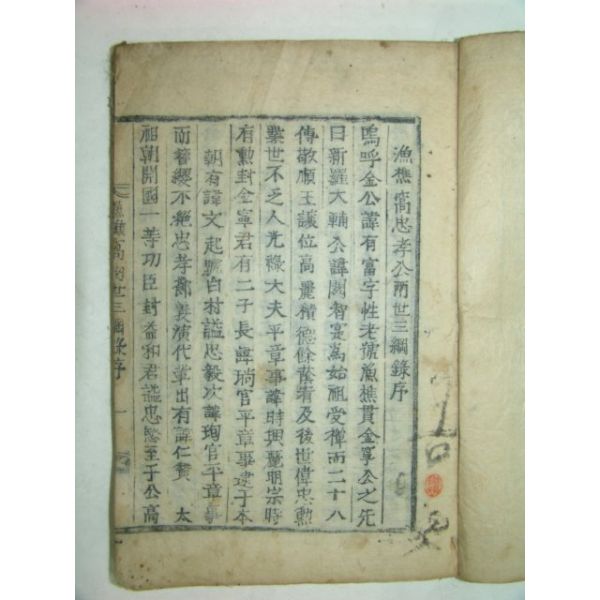 漁樵窩忠孝公兩世三綱錄序
嗚呼金公諱有富字性老號漁樵貫金寧公之先
曰新羅大輔公諱閼智寔爲始祖受禪而二十八
傳敬順王讓位高麗積德餘蔭有及後世偉忠勳
業世不乏人光祿大夫平章事諱時興麗明宗時
有勳封金寧君有二子長諱珦官平章事逮于本
朝有諱文起號白村諡忠毅次諱珣官平章事
而簪纓不絶忠孝節義演代輩出有諱仁贊 太
祖朝開國一等功臣封益和君諡忠愍至于公高
窩兩世三綱錄序 一